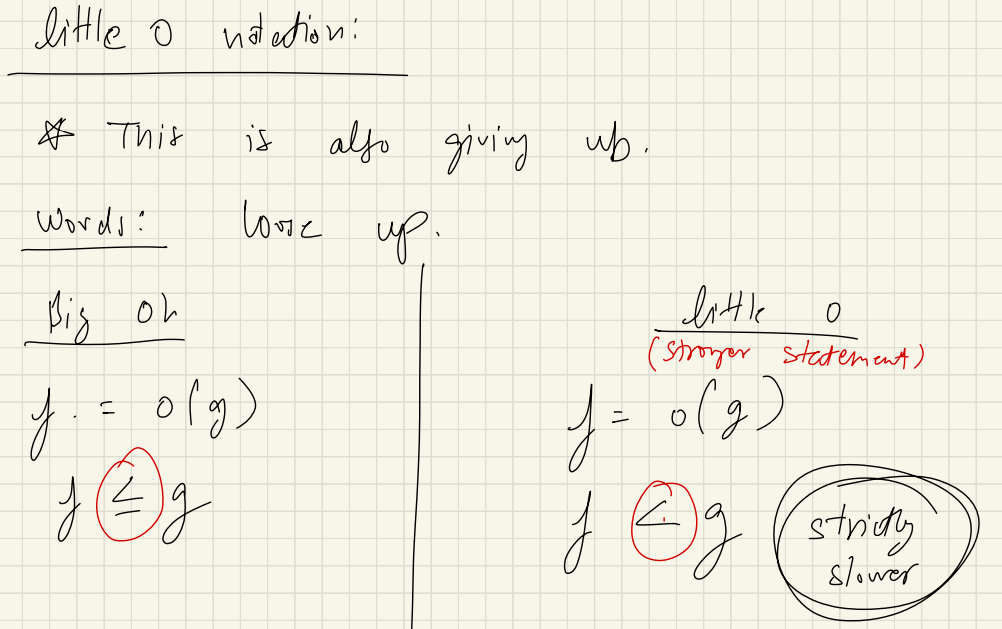 little o notation:
* This is also giving up.
Words: loose up.
Big Oh
f = O(g)
f ≤ g
little o
(stronger statement)
f = o(g)
f < g
strictly
slower